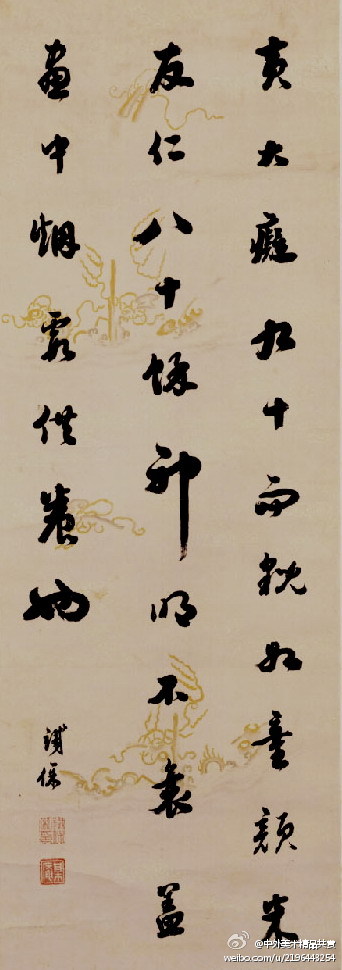 黄大癡九十而貌如童顔米
友仁八十餘神明不衰蓋
畫中烟雲供養也
鐵保
@中外美术精品共赏
weibo.com/u/2196448254